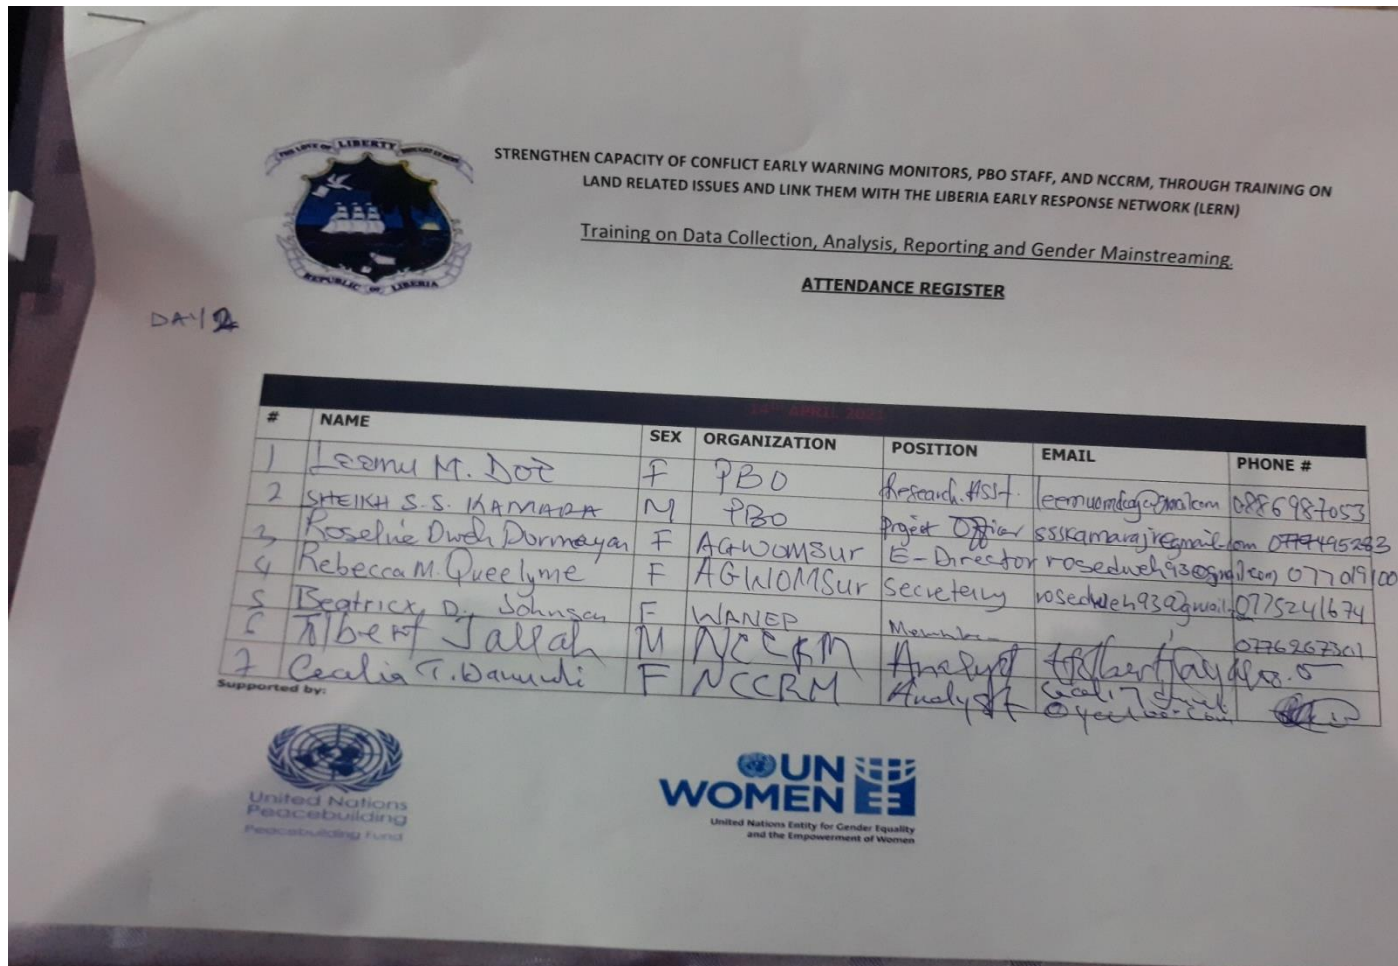 THE LOVE OF LIBERTY BROUGHT US HERE
REPUBLIC OF LIBERIA
STRENGTHEN CAPACITY OF CONFLICT EARLY WARNING MONITORS, PBO STAFF, AND NCCRM, THROUGH TRAINING ON
LAND RELATED ISSUES AND LINK THEM WITH THE LIBERIA EARLY RESPONSE NETWORK (LERN)
Training on Data Collection, Analysis, Reporting and Gender Mainstreaming.
ATTENDANCE REGISTER
DAY 2
14th APRIL 2021
# NAME SEX ORGANIZATION POSITION EMAIL PHONE #
1 Leemu M. Doe F PBO Research Asst. 0886987053
2 SHEIKH S.S. KAMARA M PBO Project Officer ssskamarajr@gmail.com
3 Roseline Dweh Dormeyan F AGWOMSur E-Director rosedweh93@gmail.com 077019100
4 Rebecca M. Queelyme F AGWOMSur Secretery rosedweh93@gmail. 0775241674
5 Beatrice D. Johnson F WANEP 0776267301
6 Albert Jallah M NCCRM Analyst
7 Cecelia T. F NCCRM Analyst
Supported by:
United Nations
Peacebuilding
Peacebuilding Fund
UN
WOMEN
United Nations Entity for Gender Equality
and the Empowerment of Women